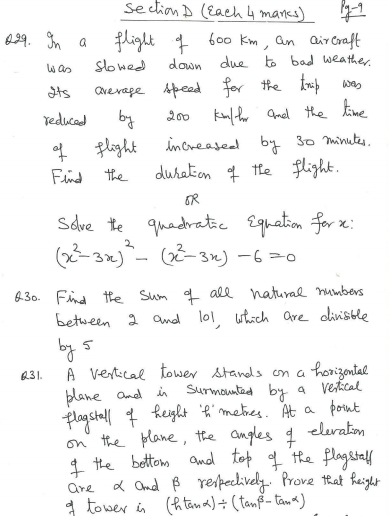 Section D (Each 4 marks) Pg-9
Q29. In a flight of 600 km, an aircraft
was slowed down due to bad weather.
Its average speed for the trip was
reduced by 200 km/hr and the time
of flight increased by 30 minutes.
Find the duration of the flight.
OR
Solve the quadratic Equation for x:
(x²-3x)² - (x²-3x) - 6 = 0
Q30. Find the sum of all natural numbers
between 2 and 101, which are divisible
by 5
Q31. A vertical tower stands on a horizontal
plane and is surmounted by a vertical
flagstaff of height 'h' metres. At a point
on the plane, the angles of elevation
of the bottom and top of the flagstaff
are α and β respectively. Prove that height
of tower is (h tan α) ÷ (tan β - tan α)